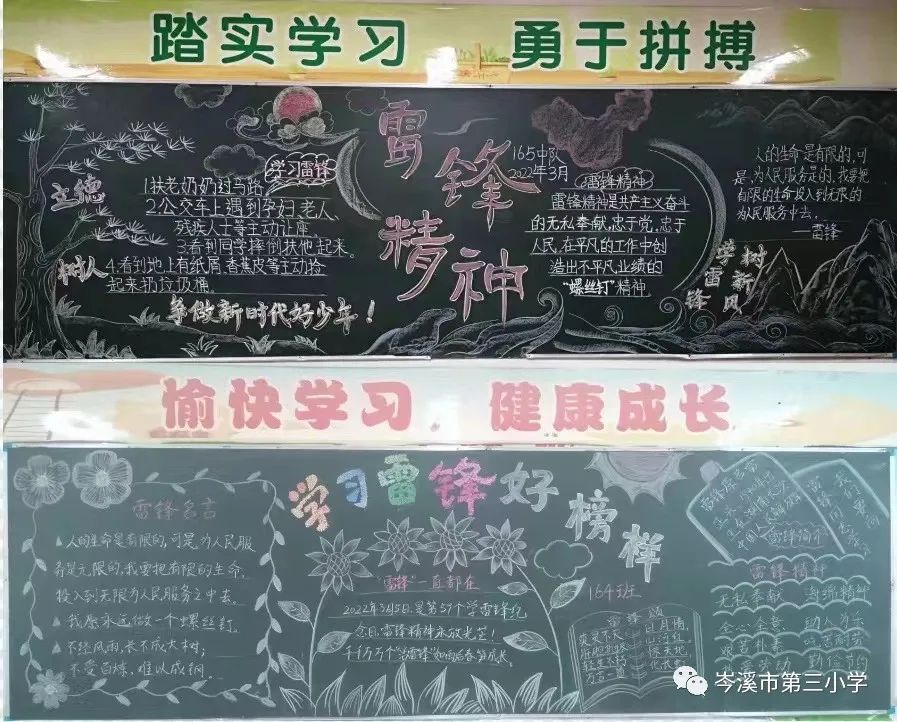 踏实学习 勇于拼搏
立德
树人
学习雷锋
1.扶老奶奶过马路
2.公交车上遇到孕妇、老人、
残疾人士等主动让座
3.看到同学摔倒扶他起来
4.看到地上有纸屑、香蕉皮等主动捡
起来扔垃圾桶
争做新时代好少年！
雷锋精神
165中队
2022年3月
雷锋精神
雷锋精神是共产主义奋斗
的无私奉献,忠于党,忠于
人民,在平凡的工作中创
造出不平凡业绩的
“螺丝钉”精神
人的生命是有限的,可
是,为人民服务是的,我要把
有限的生命投入到无限的
为人民服务中去。
—雷锋
学雷锋
树新风
愉快学习 健康成长
学习雷锋好榜样
雷锋名言
人的生命是有限的,可是为人民服
务是无限的,我要把有限的生命,
投入到无限为人民服务之中去。
我愿永远做一个螺丝钉
不经风雨,长不成大树;
不受百炼,难以成钢
“雷锋”一直都在
2022年3月5日,是第57个学雷锋纪
念日,雷锋精神永放光芒!
千千万万个“活雷锋”如雨后春笋成长
164班
雷锋颂
雷锋简介
雷锋精神
无私奉献
全心全意 助人为乐
艰苦朴素
勤俭节约
岑溪市第三小学